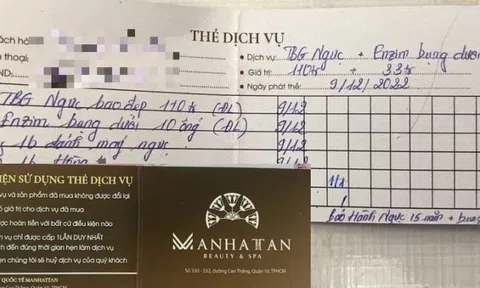 THẺ DỊCH VỤ
ách hà
thoại:
ND:
• Dịch vụ: TBG Ngực + Enzim bụng dưới
• Giá trị: 110tr + 33tr
• Ngày phát thẻ: 9/12/2022
TBG Ngực bao đẹp 110tr (ĐL) 9/12
Enzim bụng dưới 10 ống (ĐL) 9/12
1b 9/12
9/12
1/1
bảo Hành Ngực 15 năm + bụng
IỆN SỬ DỤNG THẺ DỊCH VỤ
vụ và sản phẩm đã mua không được đổi lại
ó giá trị cho dịch vụ đã mua
ược hoàn tiền với bất cứ điều kiện nào
vụ chỉ được cấp 1 LẦN DUY NHẤT
ách đến đúng thời gian hẹn làm dịch vụ
ẹn chúng tôi sẽ huỷ dịch vụ của quý khách
QUỐC TẾ MANHATTAN
MANHATTAN
BEAUTY & SPA
Số 330 - 332, đường Cao Thắng, Quận 10, TPHCM